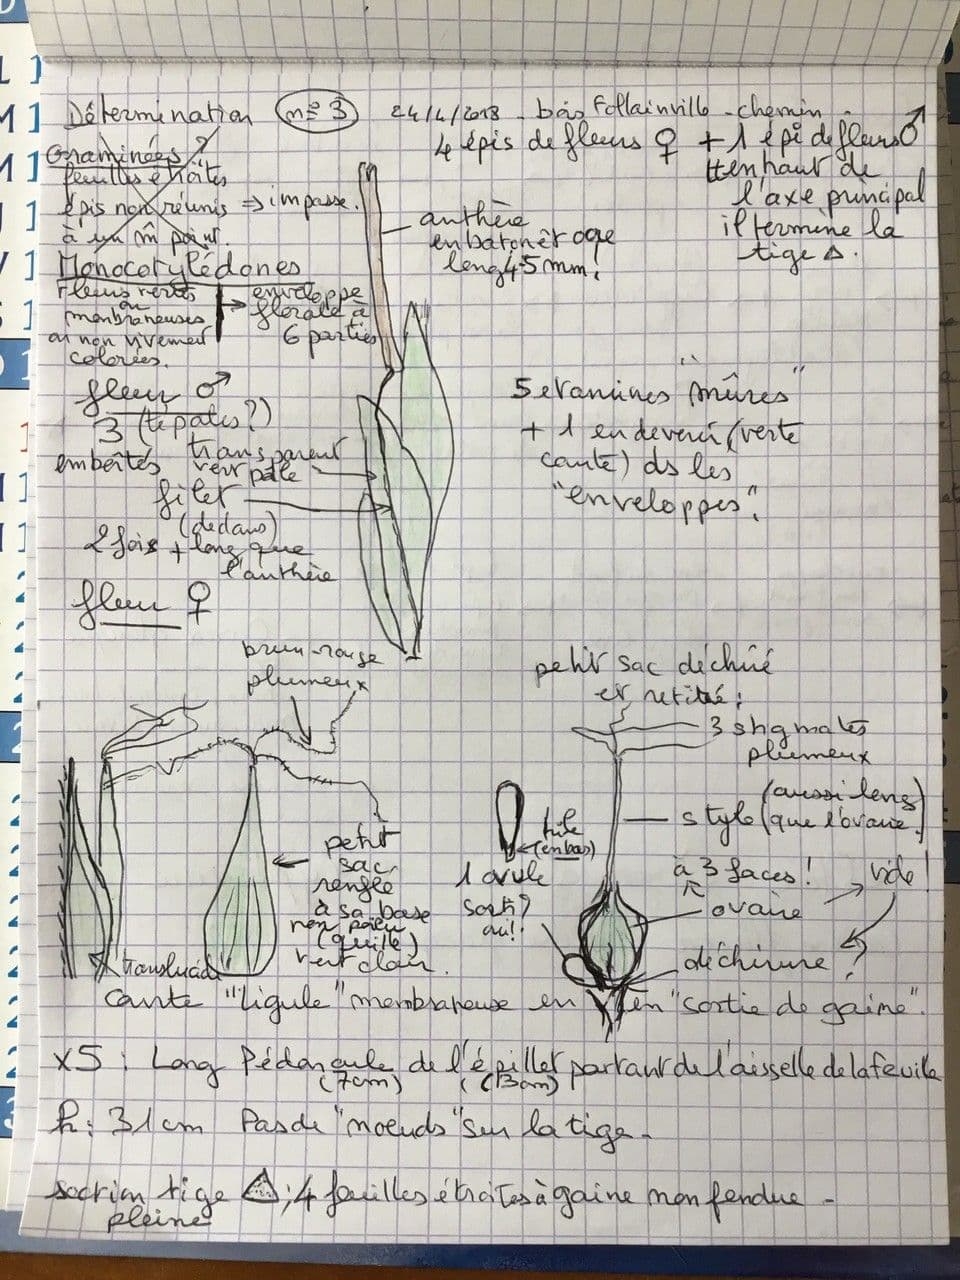 Détermination n° 3 24/4/2018 - bois Follainville - chemin -
4 épis de fleurs ♀ + 1 épi de fleurs ♂
tt en haut de
l'axe principal
il termine la
tige △.
Graminées ?
feuilles étroites
épis non réunis => impasse.
à un m̂ point.
Monocotylédones
Fleurs vertes
ou
membraneuses
ou non vivement
colorées.
enveloppe
florale à
6 parties
anthère
en batonêt
long 4-5 mm!
fleur ♂
3 (tépales?)
emboîtés transparent
vert pâle
filet
(dedans)
2 fois + long que
l'anthère
5 étamines "mûres"
+ 1 en devenir (verte
) ds les
"enveloppes".
fleur ♀
brun-rouge
plumeux
petit sac déchiré
et retiré :
3 stigmates
plumeux
style (aussi long
que l'ovaire)
à 3 faces!
ovaire
vide!
déchirure?
(en bas)
1 ovule
sorti?
oui!
petit
sac
renflé
à sa base
(quille)
vert clair.
translucide
"ligule" membraneuse en V en "sortie de gaine".
x5 : Long Pédoncule de l'épillet partant de l'aisselle de la feuille
(7cm) (13cm)
h : 31 cm Pas de "noeuds" sur la tige -
section tige △ ; 4 feuilles étroites à gaine non fendue -
pleine